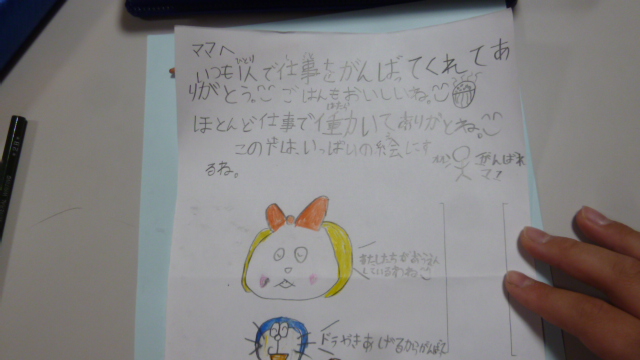 ママへ
いつも1人で仕事をがんばってくれてあ
りがとう。ごはんもおいしいね。
ほとんど仕事で働いてありがとね。
このやは、いっぱいの絵にす
るね。
がんばれ
ママ
わたしたちがおうえん
しているわね
ドラやきあげるからがんばって